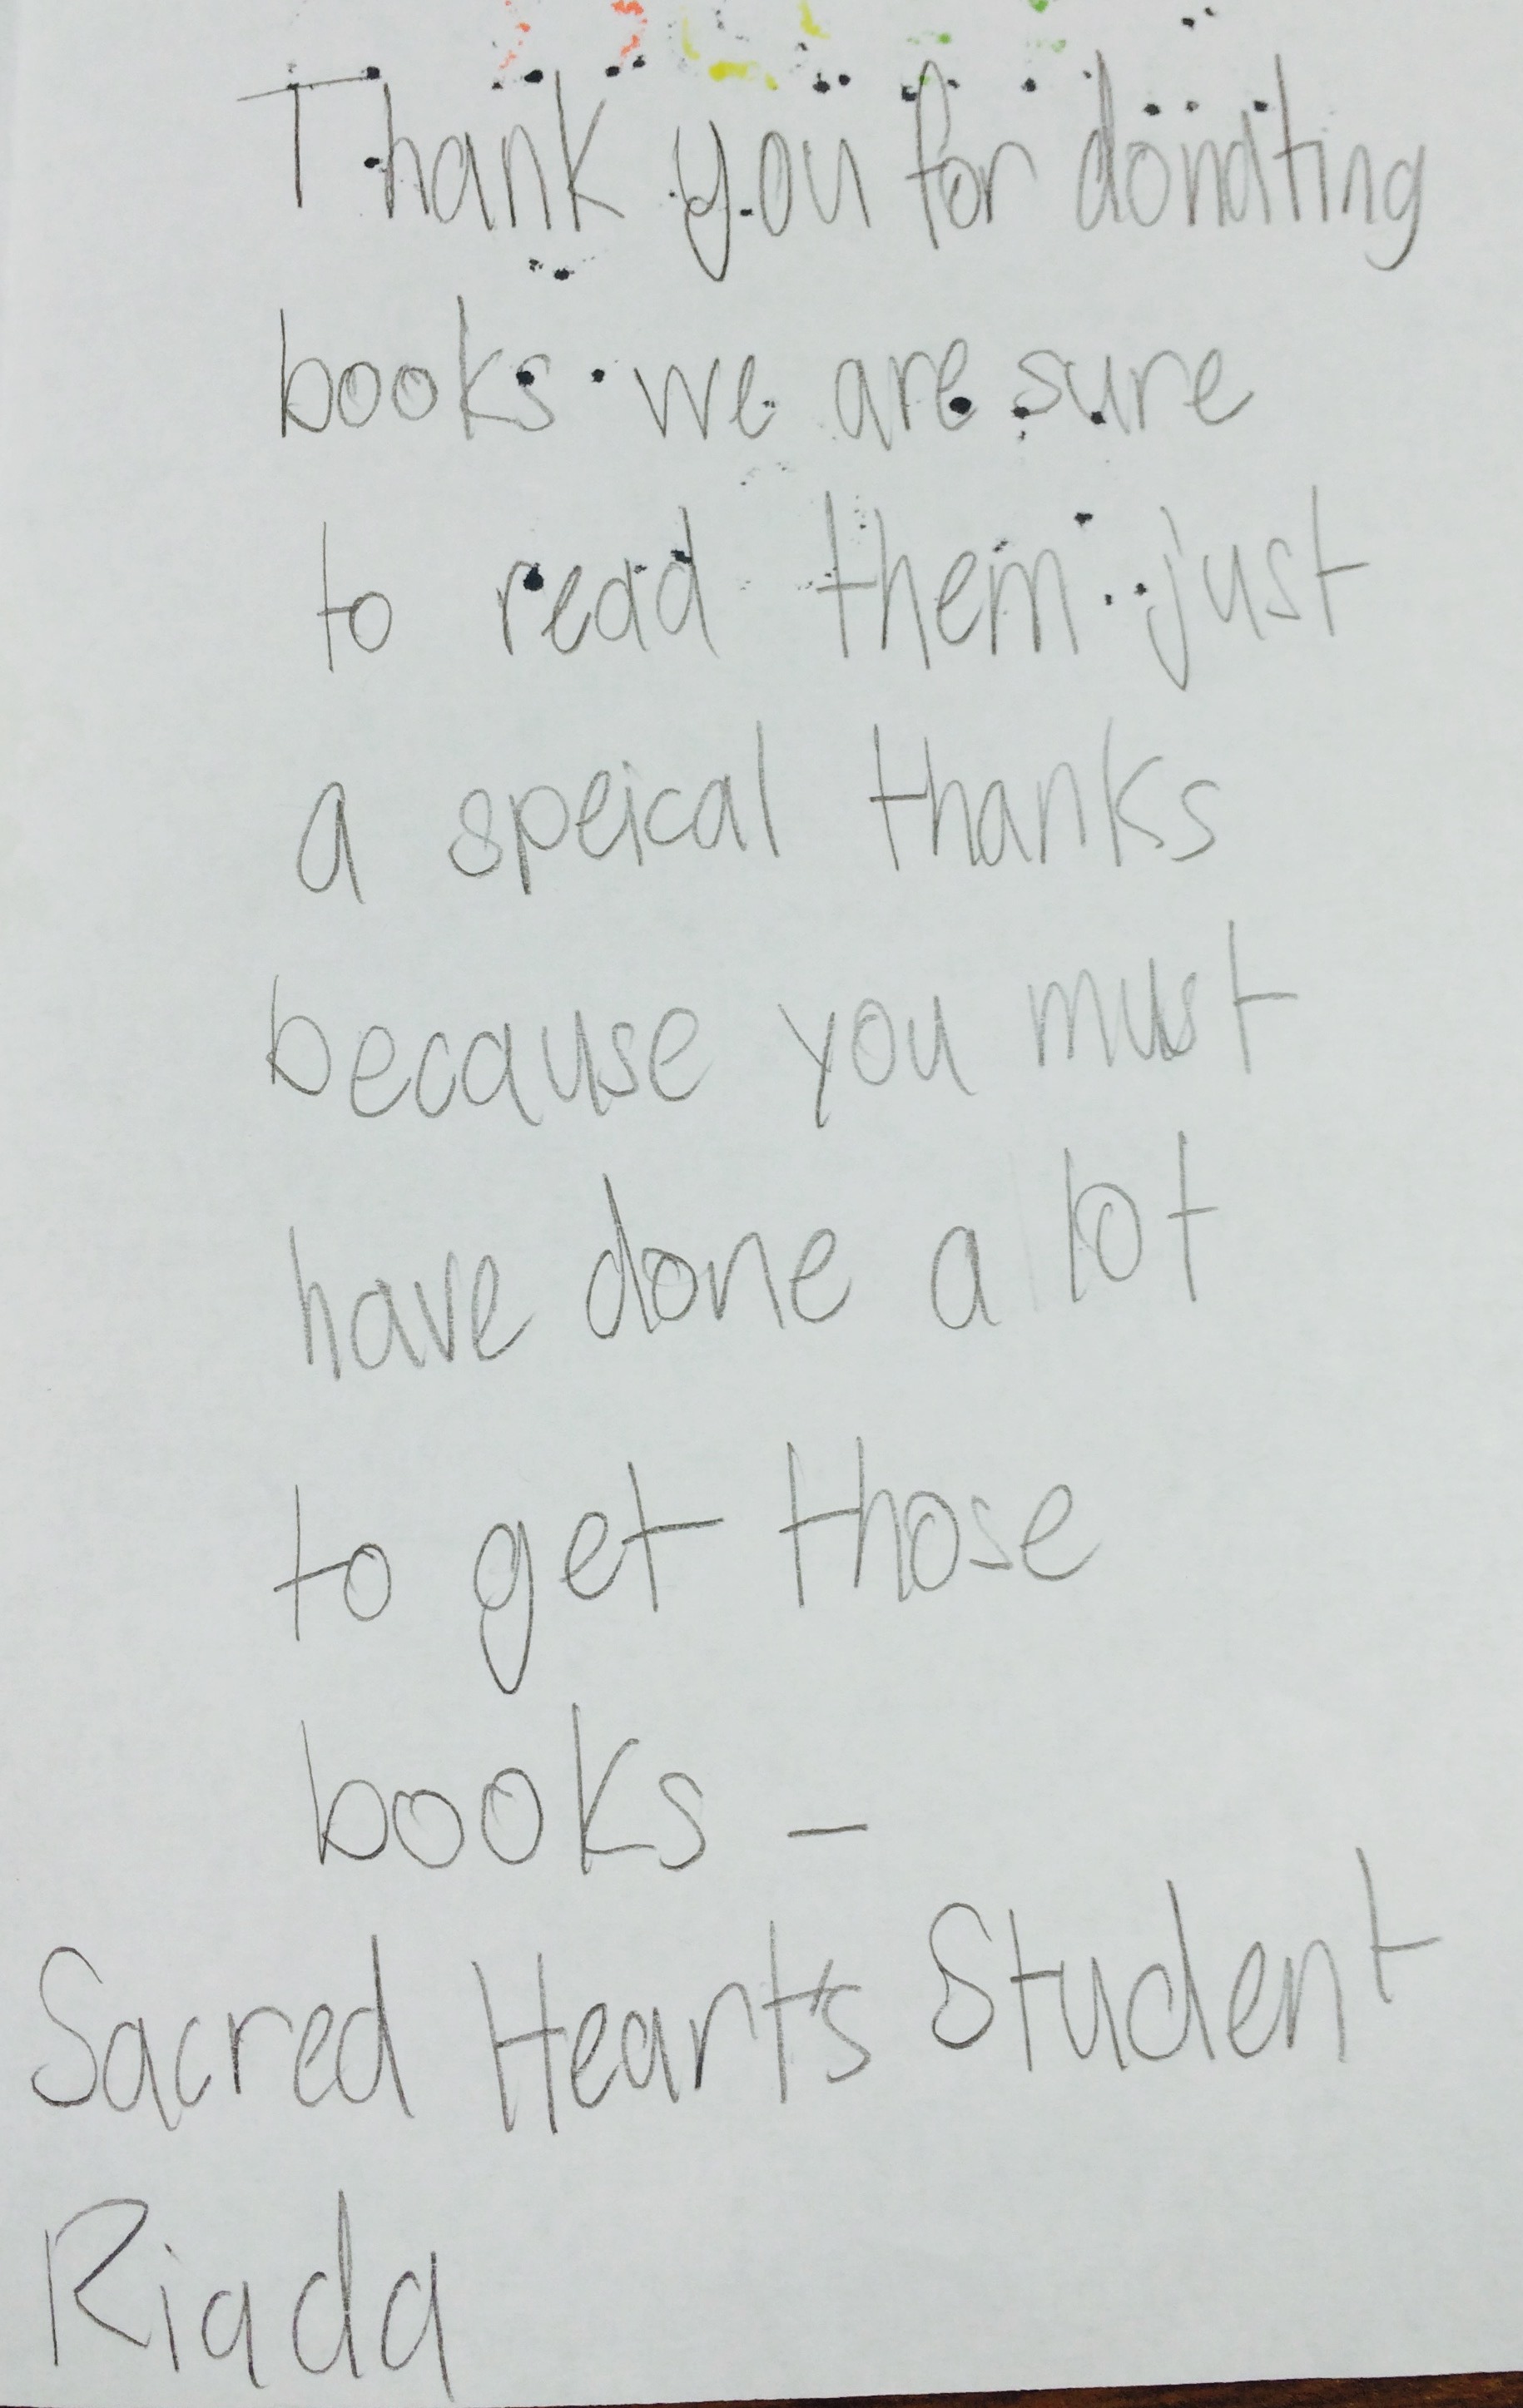 Thank you for donating
books we are sure
to read them just
a speical thanks
because you must
have done a lot
to get those
books -
Sacred Heart's Student
Riada